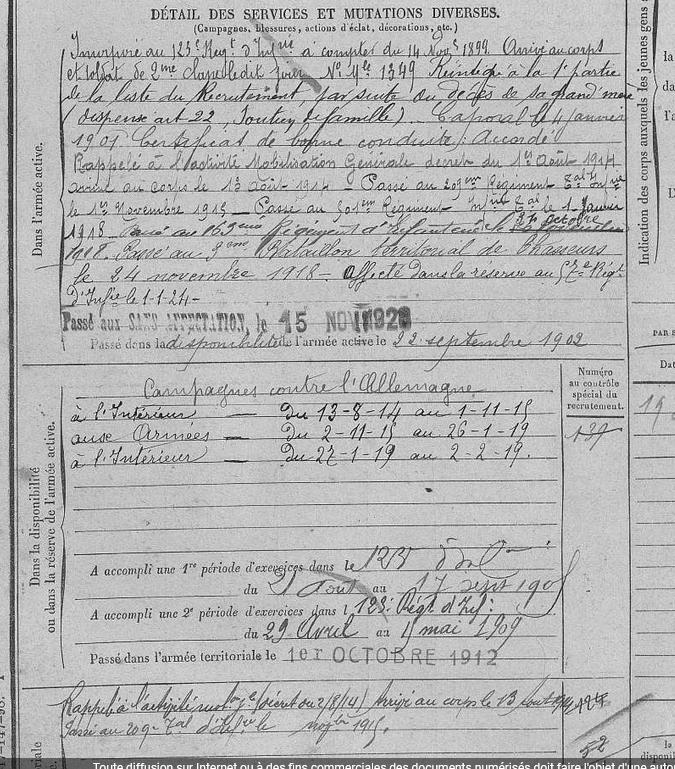 DÉTAIL DES SERVICES ET MUTATIONS DIVERSES.
(Campagnes, blessures, actions d'éclat, décorations, etc.)
Incorporé au 123e Regt d'Infrie à compter du 14 Novb 1899. Arrivé au corps
et soldat de 2me classe ledit jour No Mle 1349 Réintégré à la 1e partie
de la liste du Recrutement, par suite du décès de sa grand'mère
(dispense art 22, Soutien de famille). Caporal le 4 janvier
1901. Certificat de bonne conduite: Accordé
Rappelé à l'activité Mobilisation Générale decret du 1er Août 1914
arrivé au corps le 13 Août 1914 – Passé au 209me Régiment Tal Infrie
le 1er Novembre 1915 – Passé au 501me Régiment Infrie Tal le 1 Janvier
1918. Passé au 163eme Régiment d'Infanterie le 27 octobre
1918. Passé au 9eme Bataillon territorial de Chasseurs
le 24 novembre 1918 – affecté dans la réserve au 57e Régt
d'Infie le 1-1-24-
Passé aux SANS AFFECTATION, le 15 NOV 1928
Passé dans la disponibilité de l'armée active le 22 septembre 1902
Dans l'armée active.
Campagnes contre l'Allemagne
à l'Intérieur — Du 13-8-14 au 1-11-15
aux Armées — Du 2-11-15 au 26-1-19
à l'Intérieur — Du 27-1-19 au 2-2-19.
Numéro
au contrôle
spécial du
recrutement.
139
Dans la disponibilité
ou dans la réserve de l'armée active.
A accompli une 1re période d'exercices dans le 123
du 21 Août au 17 Sept 190
A accompli une 2e période d'exercices dans l 123e Régt d'Inf:
du 29 Avril au mai 1909
Passé dans l'armée territoriale le 1er OCTOBRE 1912
Rappelé à l'activité (décret du 2/8/14) Arrivé au corps le 13 août 1914
Passé au 209e Tal d'Infrie le novbre 1915.
52
Indication des corps auxquels les jeunes gens
PAR S
Dat
19
la
disponib
Toute diffusion sur Internet ou à des fins commerciales des documents numérisés doit faire l'objet d'une autor